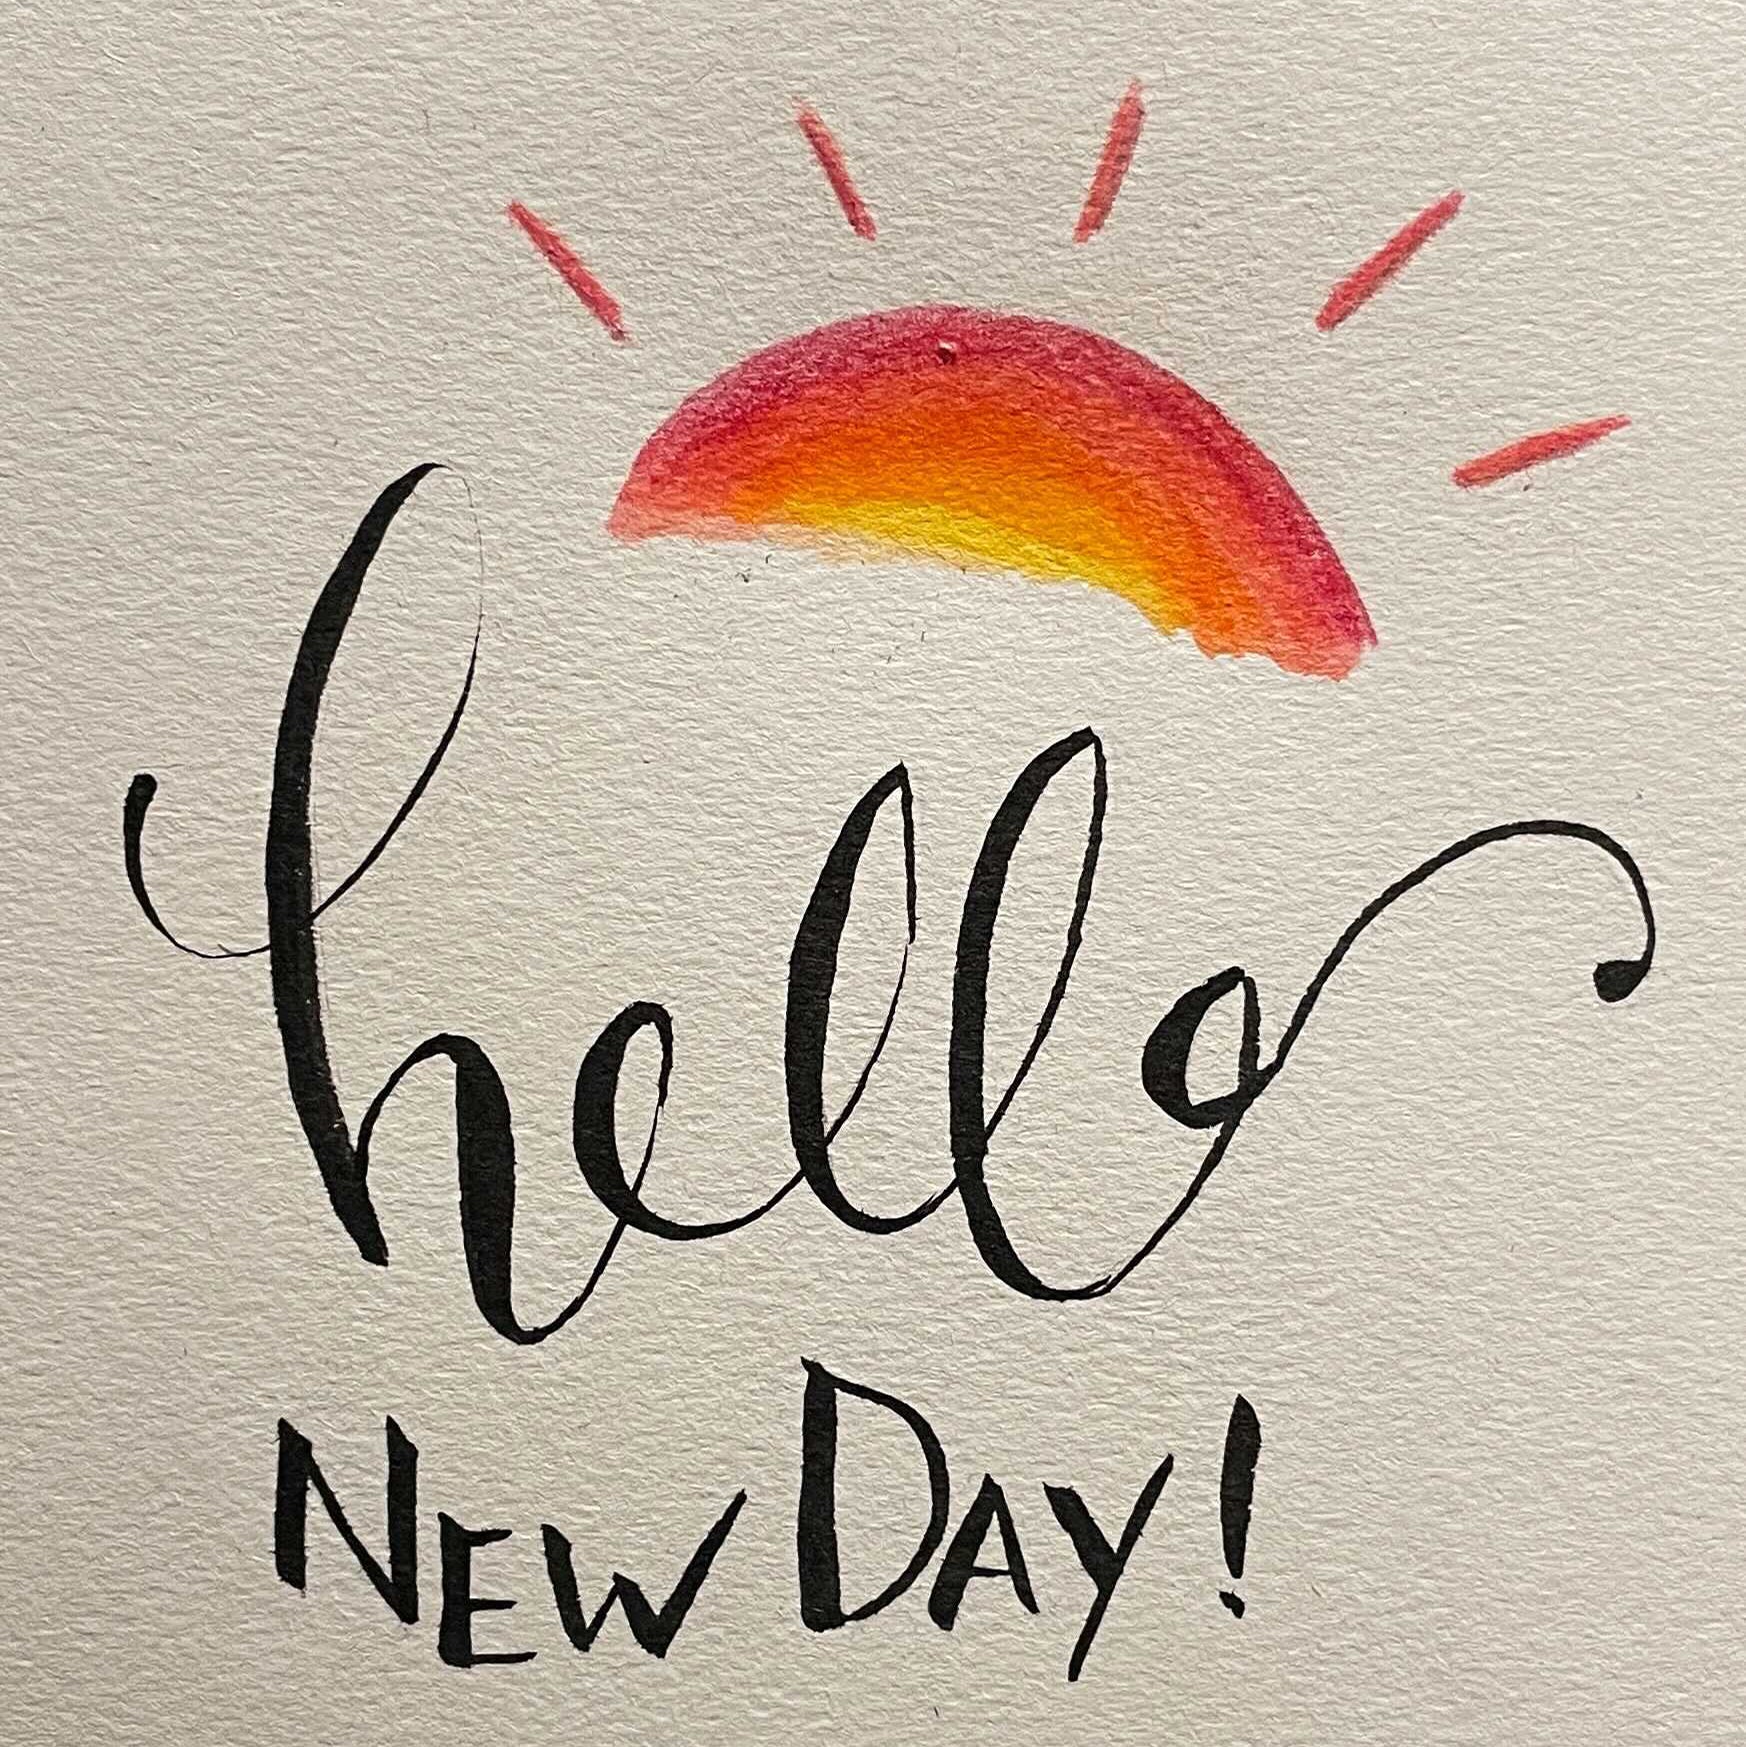 hello
NEW DAY!